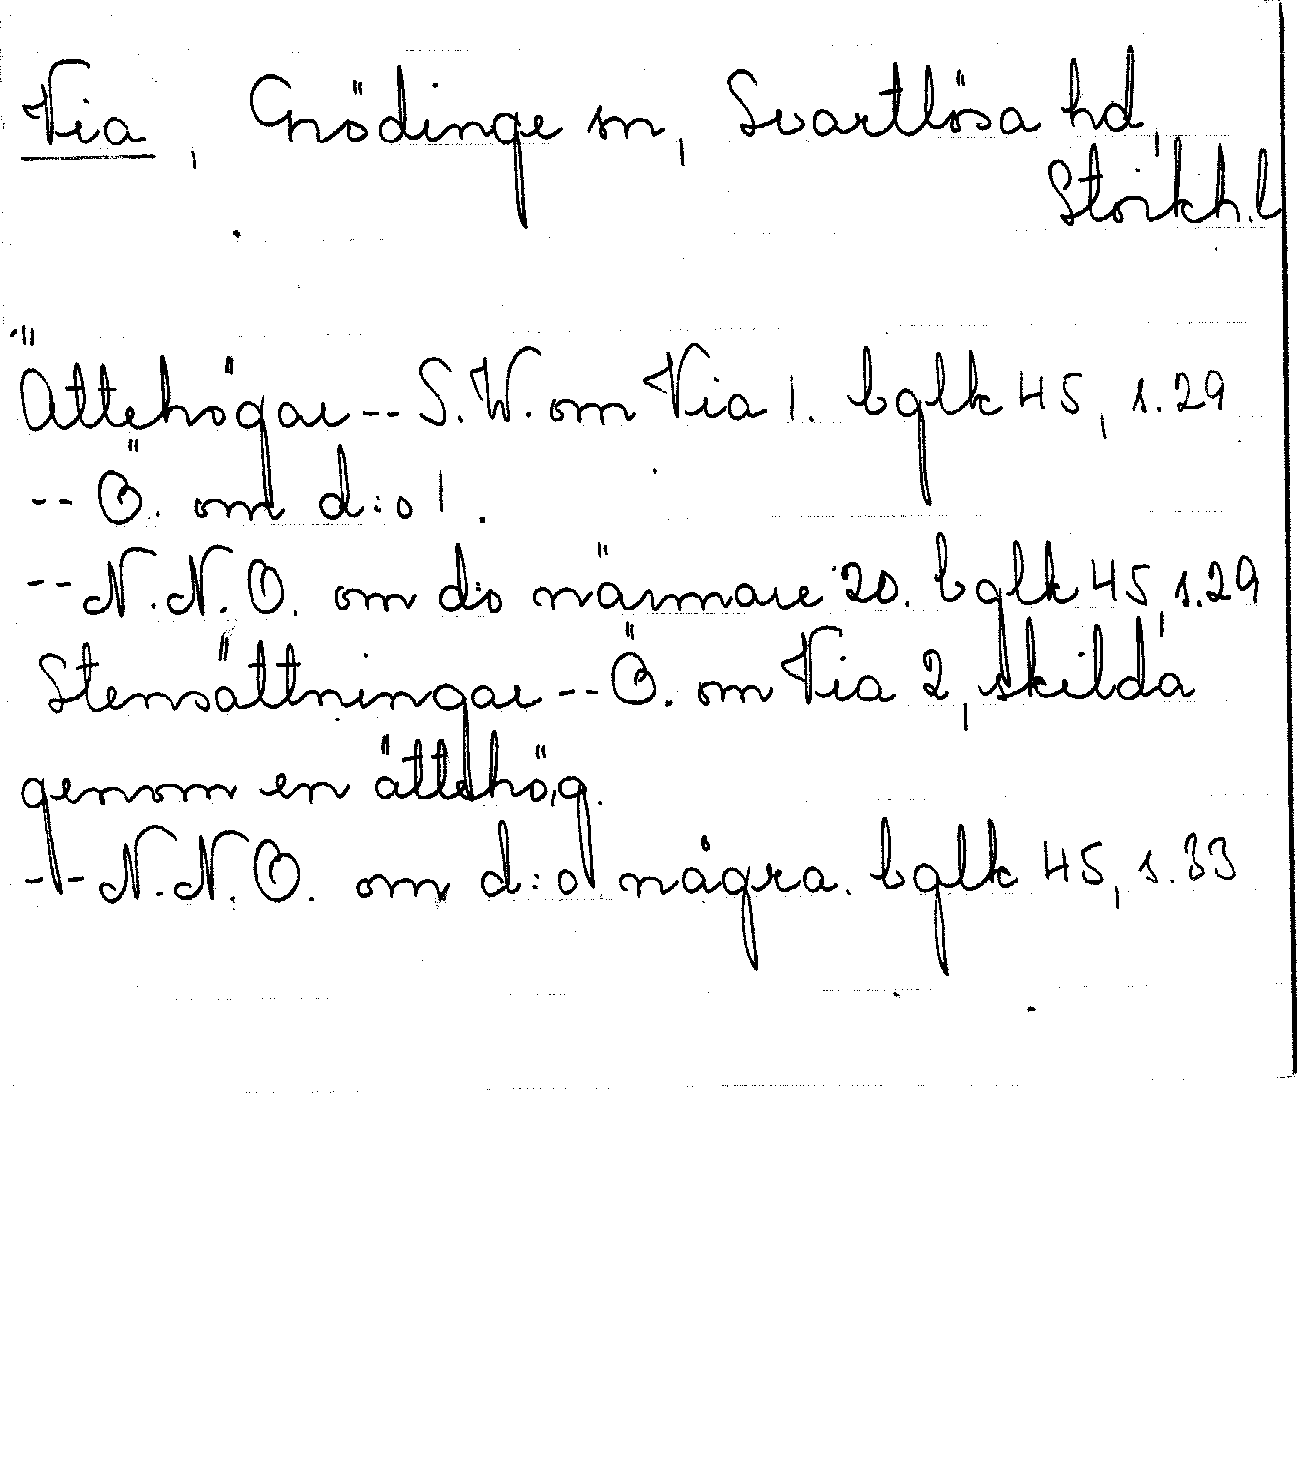 Via, Grödinge sn, Svartlösa hd,
Stockh.l
Ättehögar -- S.W. om Via 1. bglk 45, s.29
-- Ö. om d:o 1.
-- N.N.O. om d:o närmare 20. bglk 45, s.29
Stensättningar -- Ö. om Via 2, skilda
genom en ättehög.
-- N.N.O. om d:o några. bglk 45, s.33